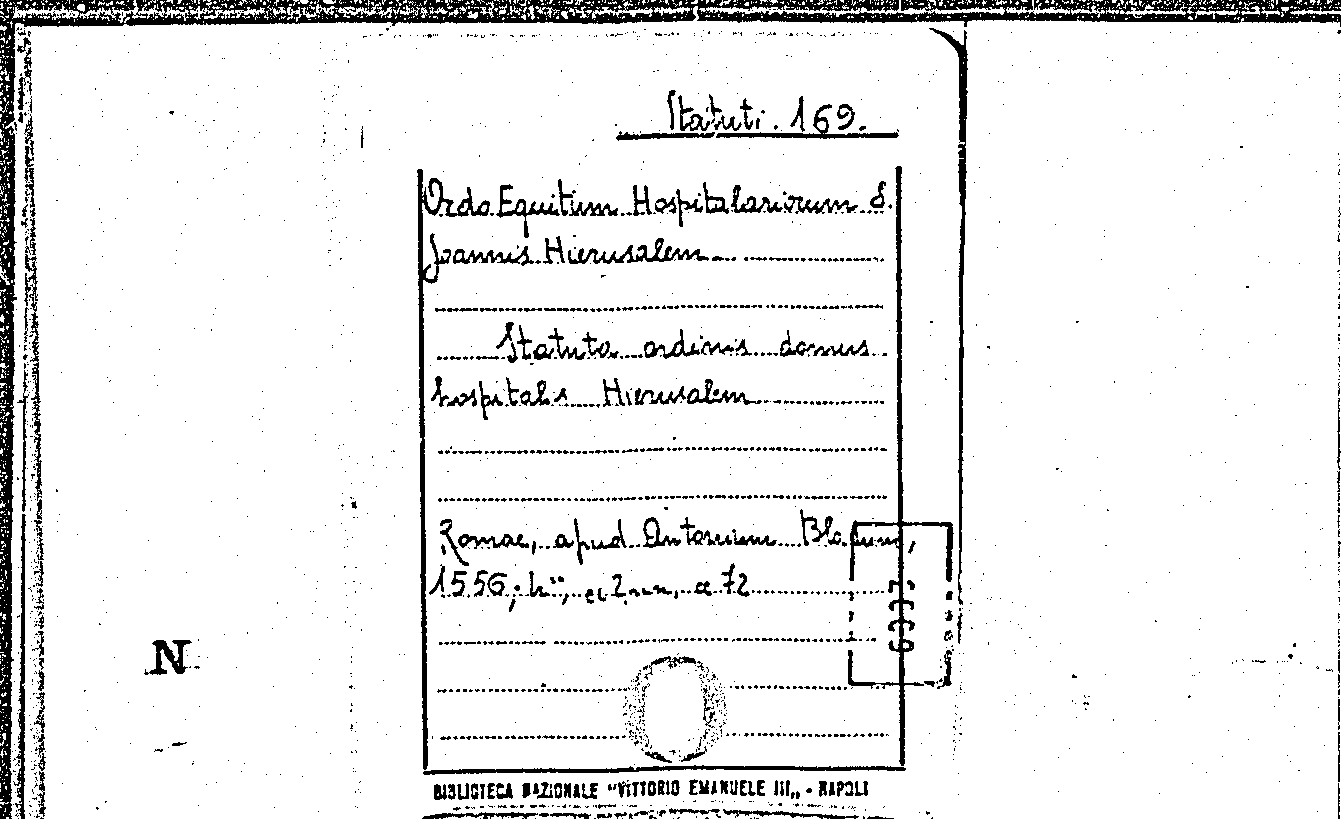 Statuti. 169.
Ordo Equitum Hospitalariorum S.
Joannis Hierusalem
Statuta ordinis domus
hospitalis Hierusalem
Romae, apud Antonium Bladum,
1556; 4°, cc 2 nn, cc 72
N
BIBLIOTECA NAZIONALE "VITTORIO EMANUELE III„ - NAPOLI